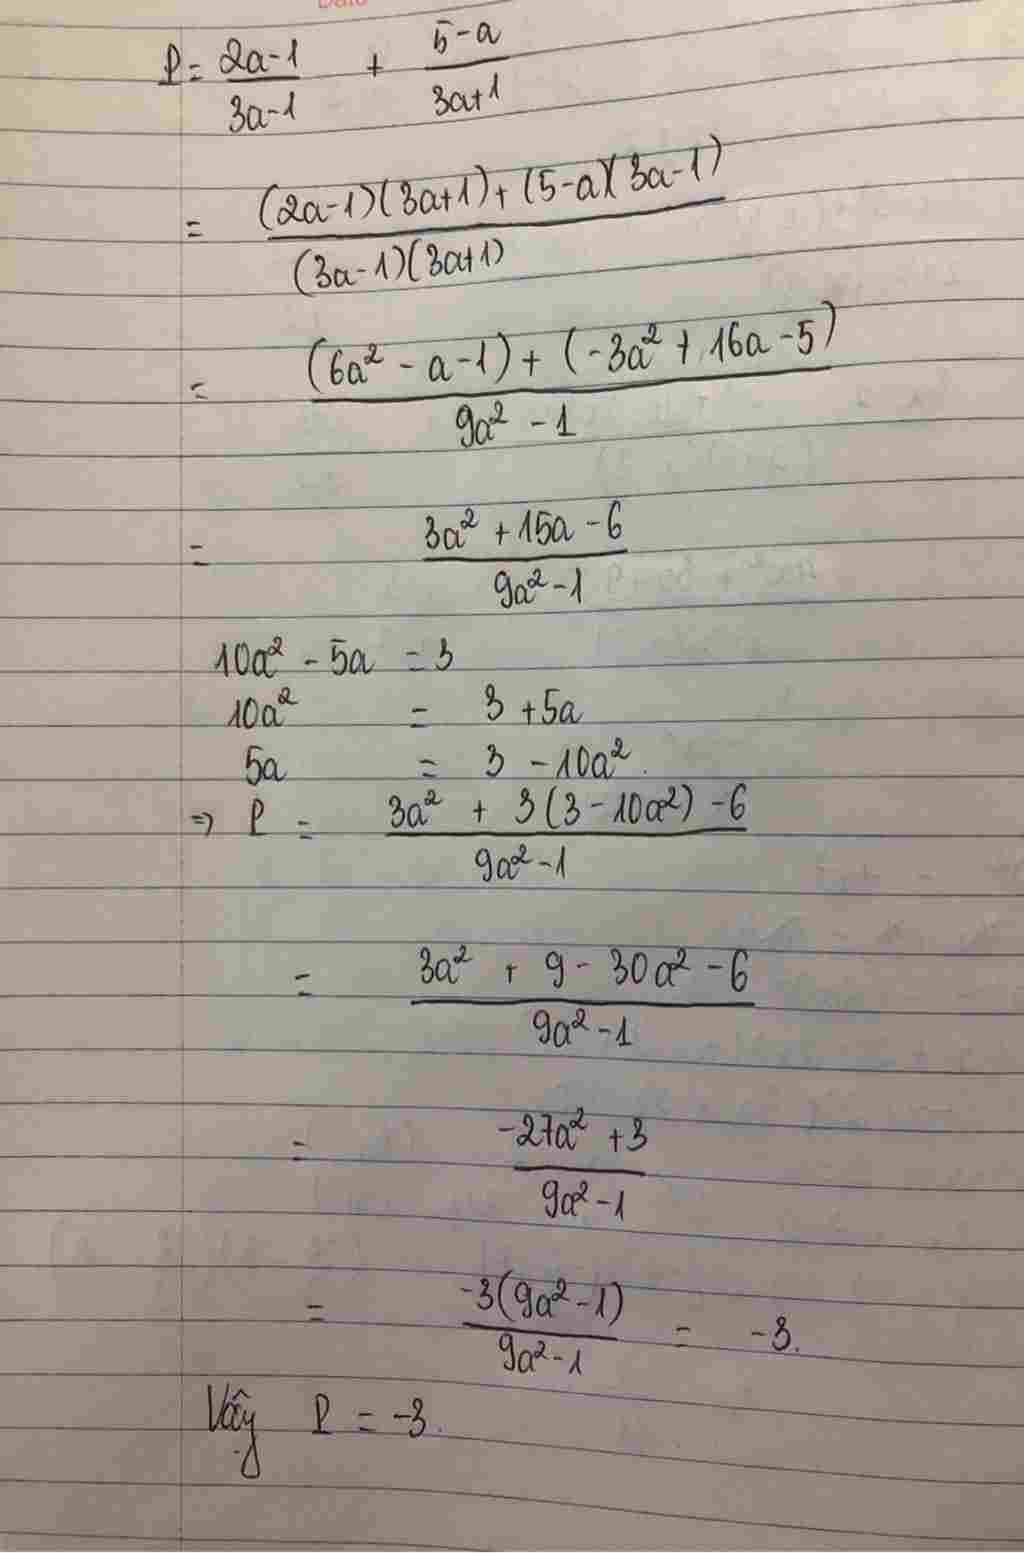 P = (2a-1)/(3a-1) + (5-a)/(3a+1)
= ((2a-1)(3a+1)+(5-a)(3a-1))/((3a-1)(3a+1))
= ((6a² - a - 1) + (-3a² + 16a - 5))/(9a² - 1)
= (3a² + 15a - 6)/(9a² - 1)
10a² - 5a = 3
10a² = 3 + 5a
5a = 3 - 10a².
⇒ P = (3a² + 3(3 - 10a²) - 6)/(9a² - 1)
= (3a² + 9 - 30a² - 6)/(9a² - 1)
= (-27a² + 3)/(9a² - 1)
= (-3(9a² - 1))/(9a² - 1) = -3.
Vậy P = -3.